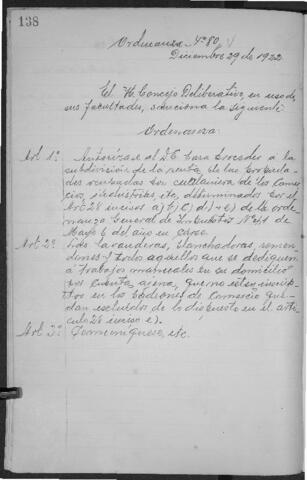 138
Ordenanza Nº 80
Diciembre 29 de 1922
El H. Concejo Deliberativo, en uso de
sus facultades, sanciona la siguiente
Ordenanza:
Art. 1º Autorízase al D.E. para proceder a la
subdivisión de la renta de los
ocupados por cualquiera de los comer-
cios, industrias, etc, determinados por el
Art 28 incisos a) b) c) d) y e) de la orde-
nanza General de Impuestos Nº 41 de
Mayo 6 del año en curso.
Art. 2º Las lavanderas, planchadoras, remen-
donas y todos aquellos que se dediquen
a trabajos manuales en su domicilio
por cuenta ajena, que no estén inscrip-
tos en los padrones de Comercio que-
dan excluidos de lo dispuesto en el artí-
culo 28 inciso e).
Art. 3º Comuníquese, etc.